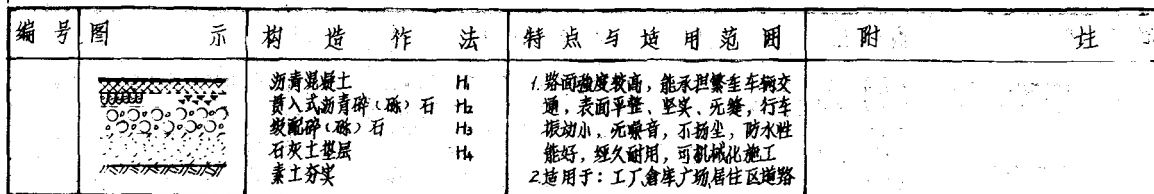 编号 图示 构造作法 特点与适用范围 附注
沥青混凝土 H₁
贯入式沥青碎(砾)石 H₂
级配碎(砾)石 H₃
石灰土垫层 H₄
素土夯实
1.路面强度较高，能承担繁重车辆交
通，表面平整、坚实、无缝，行车
振动小，无噪音，不扬尘，防水性
能好，经久耐用，可机械化施工
2.适用于：工厂仓库广场居住区道路